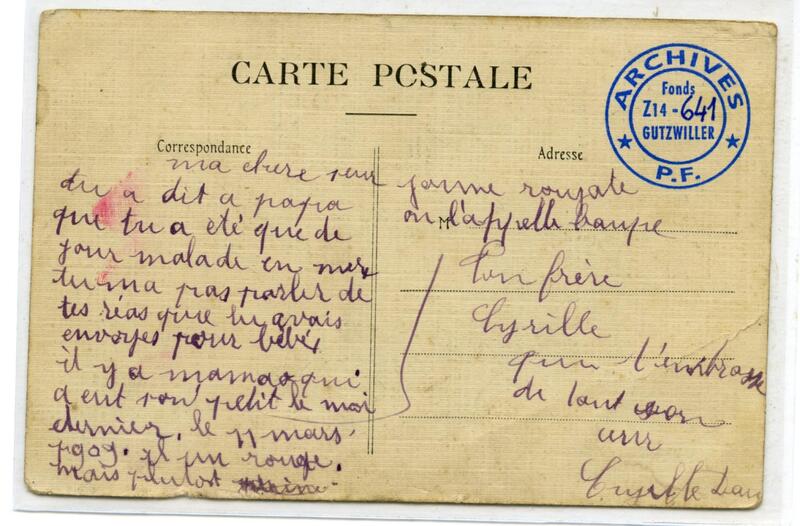 CARTE POSTALE
ARCHIVES
Fonds
Z14-641
GUTZWILLER
P.F.
Correspondance
ma chere seur
tu a dit a papa
que tu a été que de
jour malade en mer
tu ma pas parler de
tes réas que tu avais
envoyes pour bébé,
il y a maman qui
a eut son petit le moi
dernier, le 11 mars
1909. il un rouge.
mais plutost
Adresse
jaune rougate
M
on l'appelle
Ton frère
Cyrille
qui t'embrasse
de tout son
Cyrille